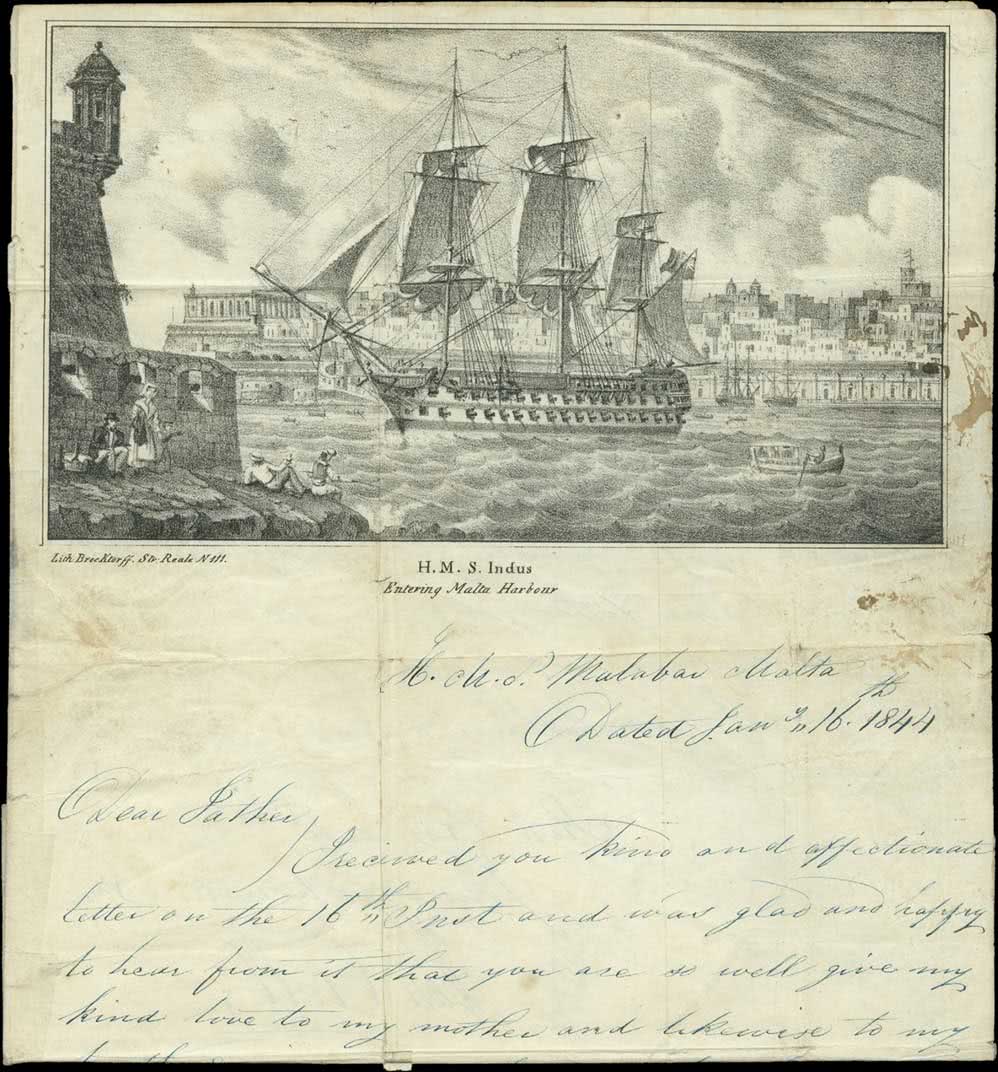 Lith. Brocktorff. Str. Reale N 111.
H. M. S. Indus
Entering Malta Harbour
H. M. S. Malabar Malta
Dated Jany 16th 1844
Dear Father
I received you kind and affectionate
letter on the 16th Inst and was glad and happy
to hear from it that you are so well give my
kind love to my mother and likewise to my